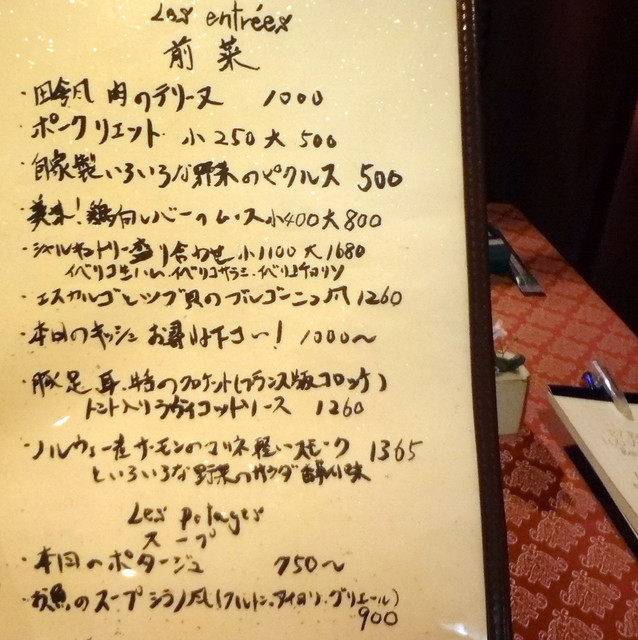 Les entrées
前菜
・田舎風 肉のテリーヌ 1000
・ポークリエット 小250 大500
・自家製いろいろな野菜のピクルス 500
・美味!鶏白レバーのムース 小400 大800
・シャルキュトリー盛り合わせ 小1100 大1680
イベリコ生ハム、イベリコサラミ、イベリコチョリソ
・エスカルゴとツブ貝のブルゴーニュ風 1260
・本日のキッシュ お尋ね下さい! 1000〜
・豚足、耳、のクロケット(フランス版コロッケ)
トマト入りラヴィゴットソース 1260
・ノルウェー産サーモンのマリネ 軽いスモーク 1365
といろいろな野菜のサラダ
Les potages
スープ
・本日のポタージュ 750〜
・お魚のスープ (クルトン、アイヨリ、グリエール)
900